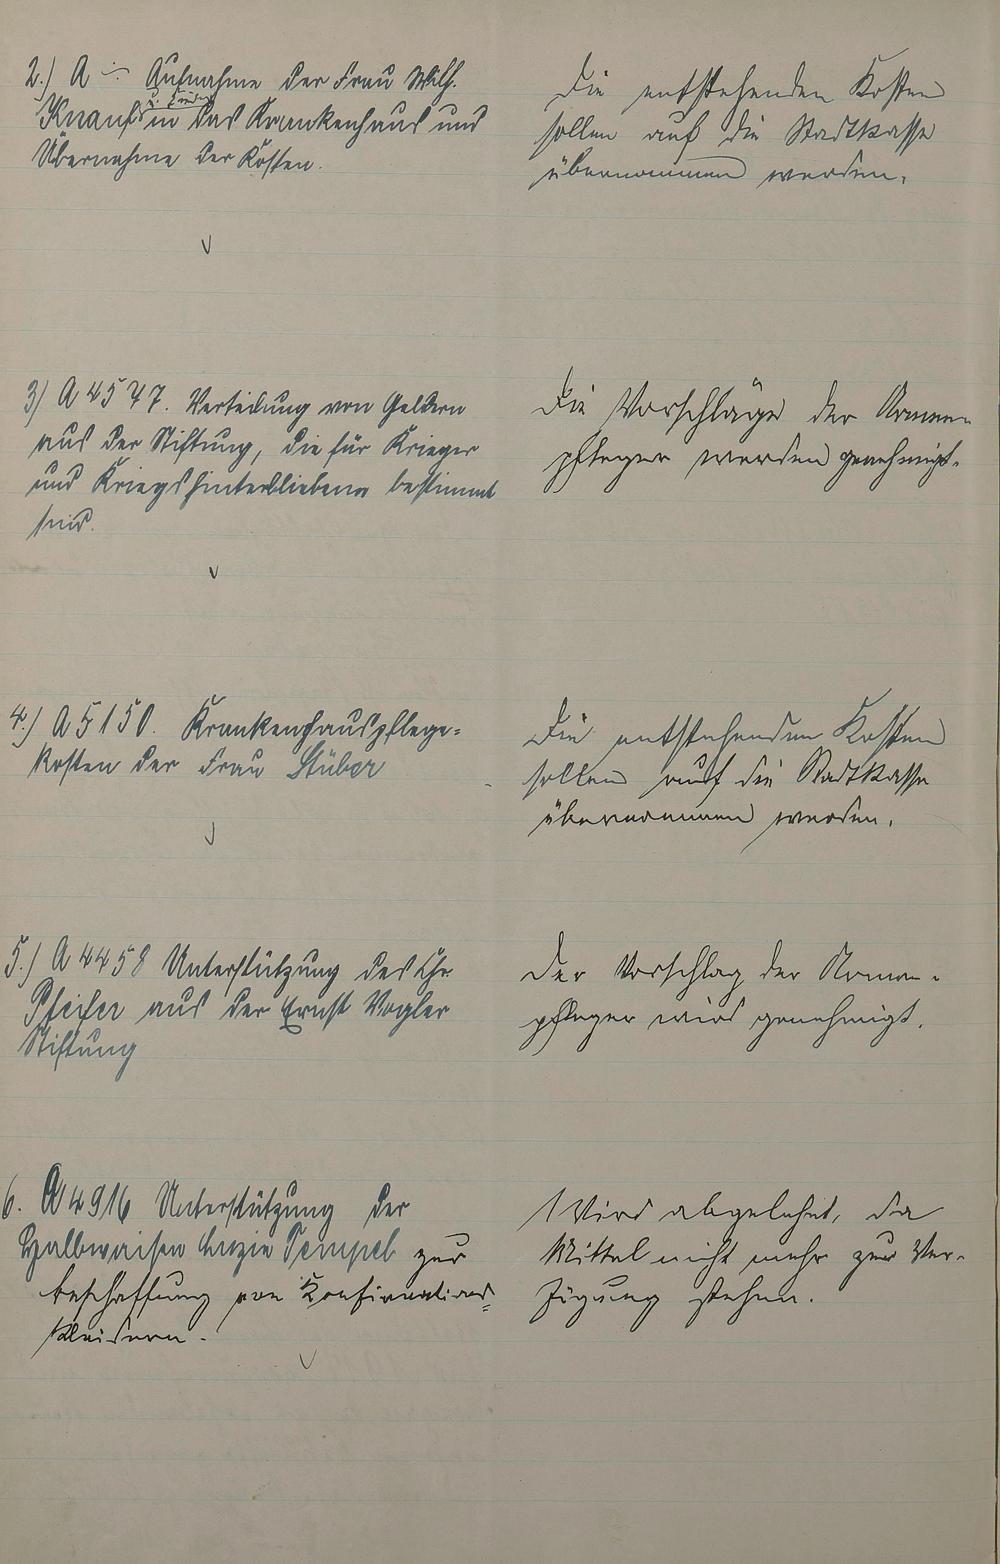 2.) A ÷ Aufnahme der Frau Wilh.
Knauf in das Krankenhaus und
Übernahme der Kosten.
Die entstehenden Kosten
sollen auf die Stadtkasse
übernommen werden.
3) A 4577. Verteilung von Geldern
aus der Stiftung, die für Krieger
und Kriegshinterbliebene bestimmt
sind.
Die Vorschläge der Armen-
pfleger werden genehmigt.
4.) A 5150. Krankenhauspflege-
kosten der Frau Stüber
Die entstehenden Kosten
sollen auf die Stadtkasse
übernommen werden.
5.) A 4458 Unterstützung des Chr.
Pfeifer aus der Ernst Vogler
Stiftung
Der Vorschlag der Armen-
pfleger wird genehmigt.
6. A 4916 Unterstützung der
Halbwaisen Luzie Tempel zur
Beschaffung von Konfirmations-
kleidern.
Wird abgelehnt, da
Mittel nicht mehr zur Ver-
fügung stehen.